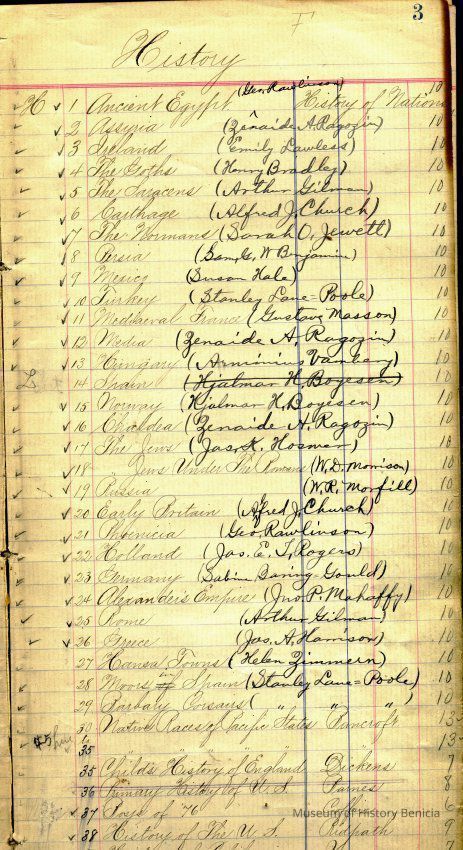 3
History
(Geo. Rawlinson) 10
H 1 Ancient Egypt, ^ History of Nations
2 Assyria (Zenaide A. Ragozin) 10
3 Ireland (Emily Lawless) 10
4 The Goths (Henry Bradley) 10
5 The Saracens (Arthur Gilman) 10
6 Carthage (Alfred J. Church) 10
7 The Normans (Sarah O. Jewett) 10
8 Persia (Sam. G. W Benjamin) 10
9 Mexico (Susan Hale) 10
10 Turkey (Stanley Lane=Poole) 10
11 Mediaeval France (Gustave Masson) 10
12 Media (Zenaide A. Ragozin) 10
13 Hungary (Arminius Vambery) 10
14 Spain (Hjalmar H. Boyesen) 10
15 Norway (Hjalmar H. Boyesen) 10
16 Chaldea (Zenaide A. Ragozin) 10
17 The Jews (Jas. K. Hosmer) 10
18 " Jews Under The Romans (W. D. Morrison) 10
19 Russia (W. R. Morfill) 10
20 Early Britain (Alfred J. Church) 10
21 Phoenicia (Geo. Rawlinson) 10
22 Holland (Jas. E. T. Rogers) 10
23 Germany (Sabine Baring-Gould) 10
24 Alexander's Empire (Jno. P. Mahaffy) 10
25 Rome (Arthur Gilman) 10
26 Greece (Jas. A. Harrison) 10
27 Hansa Towns (Helen Zimmern) 10
28 Moors in Spain (Stanley Lane=Poole) 10
29 Barbary Corsairs ( " " " ) 10
30 Native Races of Pacific States Bancroft 13
35 " " " " " 13
35 Child's History of England Dickens 7
36 Primary History of U. S. Barnes 8
37 Boys of '76 Coffin 6
Museum of History Benicia
38 History of The U. S. Ridpath 9